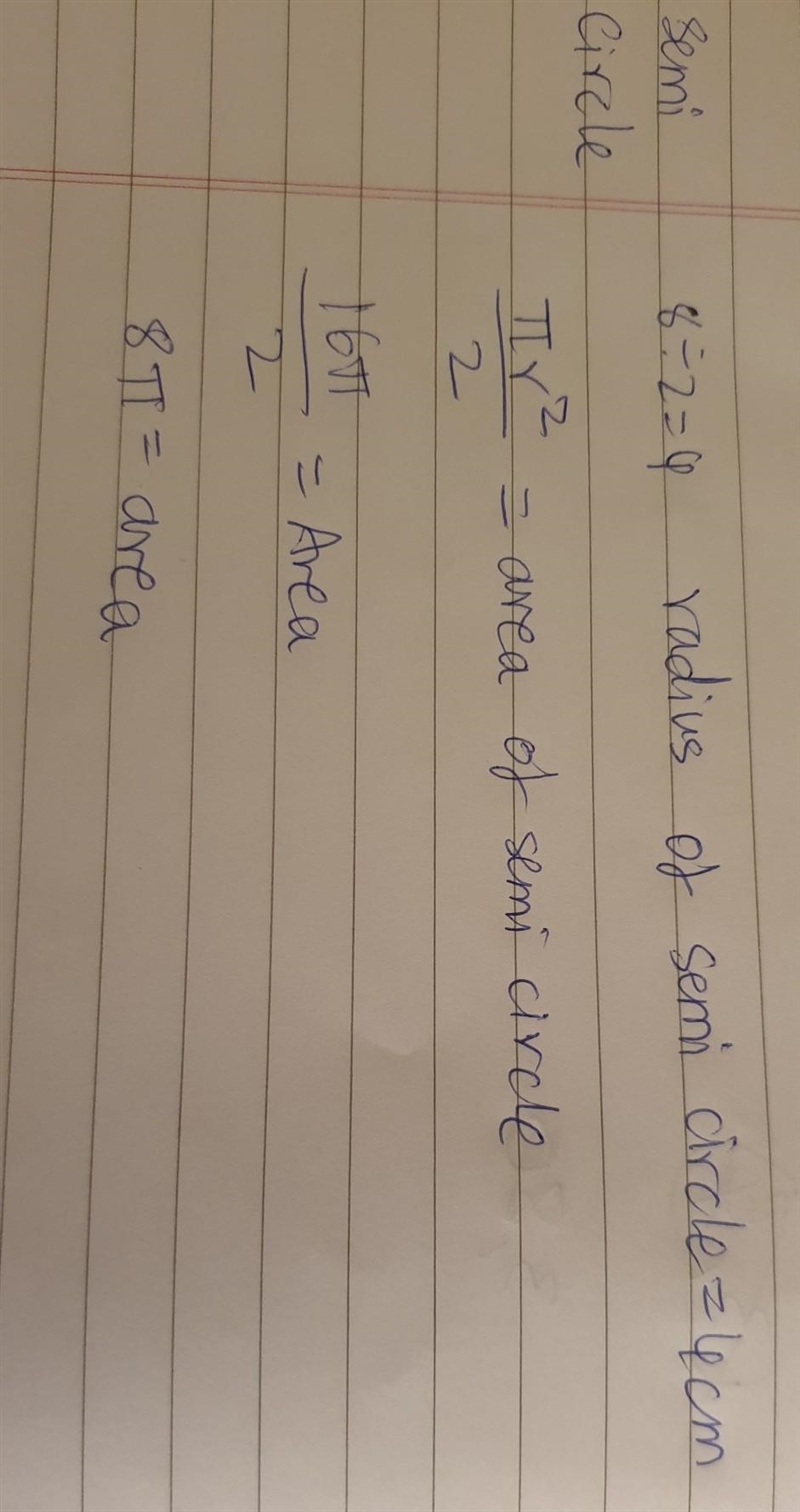 semi 8÷2=4 radius of semi circle = 4cm
circle
πr²/2 = area of semi circle
16π/2 = Area
8π = area